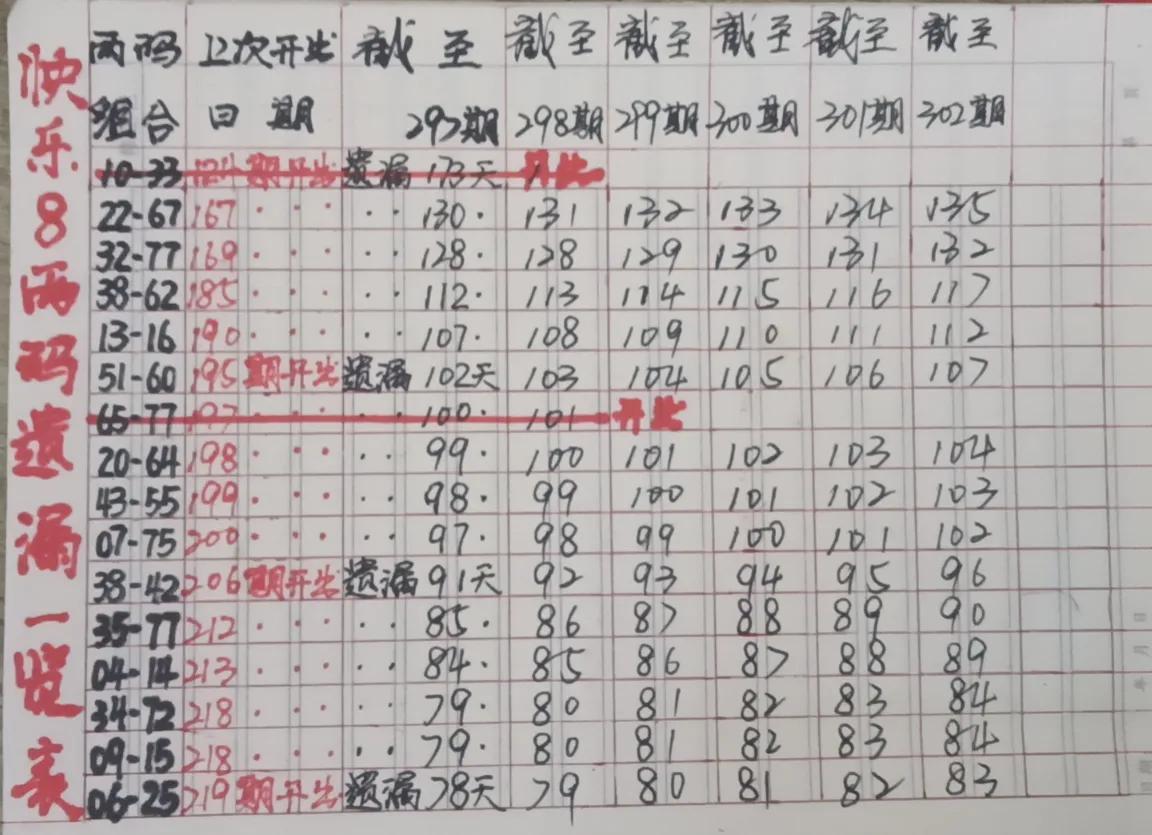 快乐8两码遗漏一览表
两码 上次开出 截至 截至 截至 截至 截至 截至
组合 日期 297期 298期 299期 300期 301期 302期
10-33 124期开出 遗漏 173天 开出
22-67 167 · · · · · 130· 131 132 133 134 135
32-77 169 · · · · · 128· 128 129 130 131 132
38-62 185 · · · · · 112· 113 114 115 116 117
13-16 190 · · · · · 107· 108 109 110 111 112
51-60 195期开出 遗漏 102天 103 104 105 106 107
65-77 197 · · · · · 100· 101 开出
20-64 198 · · · · · 99· 100 101 102 103 104
43-55 199 · · · · · 98· 99 100 101 102 103
07-75 200 · · · · · 97· 98 99 100 101 102
38-42 206期开出 遗漏 91天 92 93 94 95 96
35-77 212 · · · · · 85· 86 87 88 89 90
04-14 213 · · · · · 84· 85 86 87 88 89
34-72 218 · · · · · 79· 80 81 82 83 84
09-15 218 · · · · · 79· 80 81 82 83 84
06-25 219期开出 遗漏 78天 79 80 81 82 83